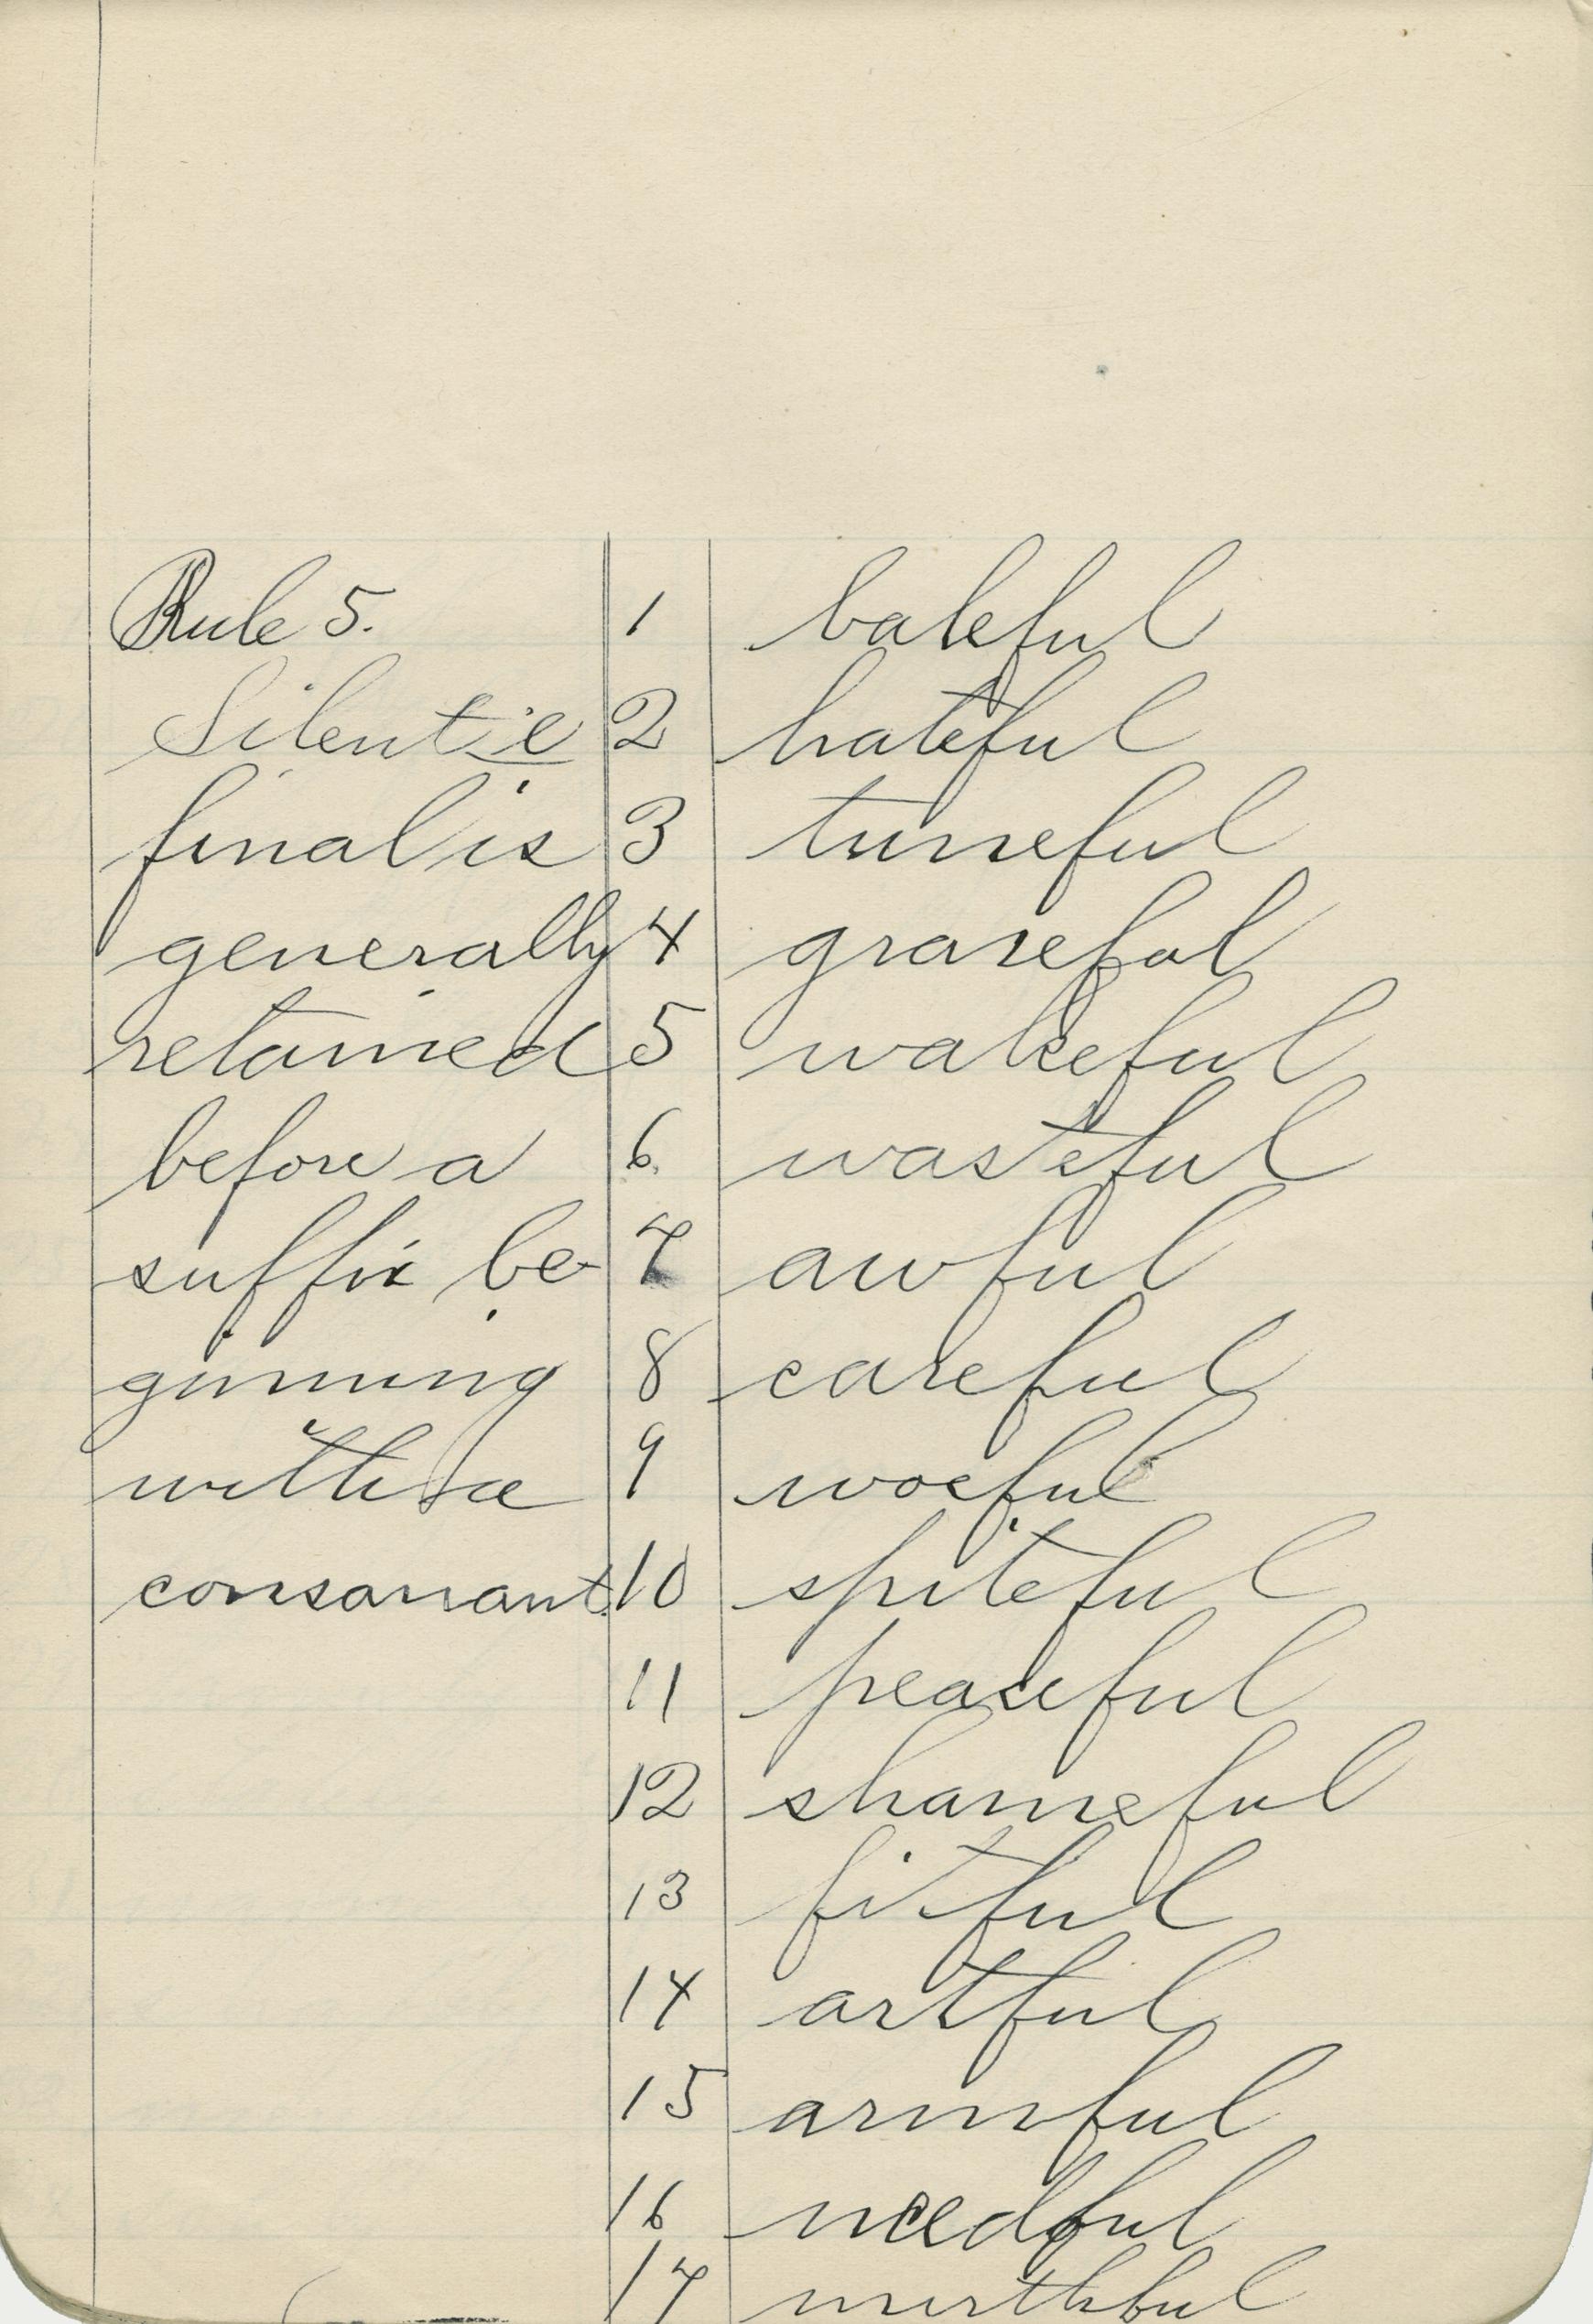 Rule 5. 1 baleful
Silent e 2 hateful
final is 3 tuneful
generally 4 graceful
retained 5 wakeful
before a 6. wasteful
suffix be- 7 awful
ginning 8 careful
with a 9 woeful
consonant. 10 spiteful
11 peaceful
12 shameful
13 fitful
14 artful
15 armful
16 needful
17 mirthful